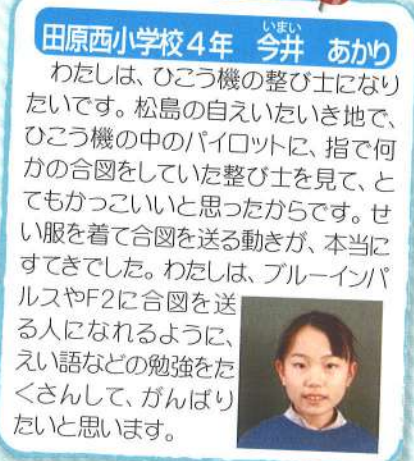 田原西小学校4年 今井 あかり
いまい
わたしは、ひこう機の整び士になり
たいです。松島の自えいたいき地で、
ひこう機の中のパイロットに、指で何
かの合図をしていた整び士を見て、と
てもかっこいいと思ったからです。せ
い服を着て合図を送る動きが、本当に
すてきでした。わたしは、ブルーインパ
ルスやF2に合図を送
る人になれるように、
えい語などの勉強をた
くさんして、がんばり
たいと思います。